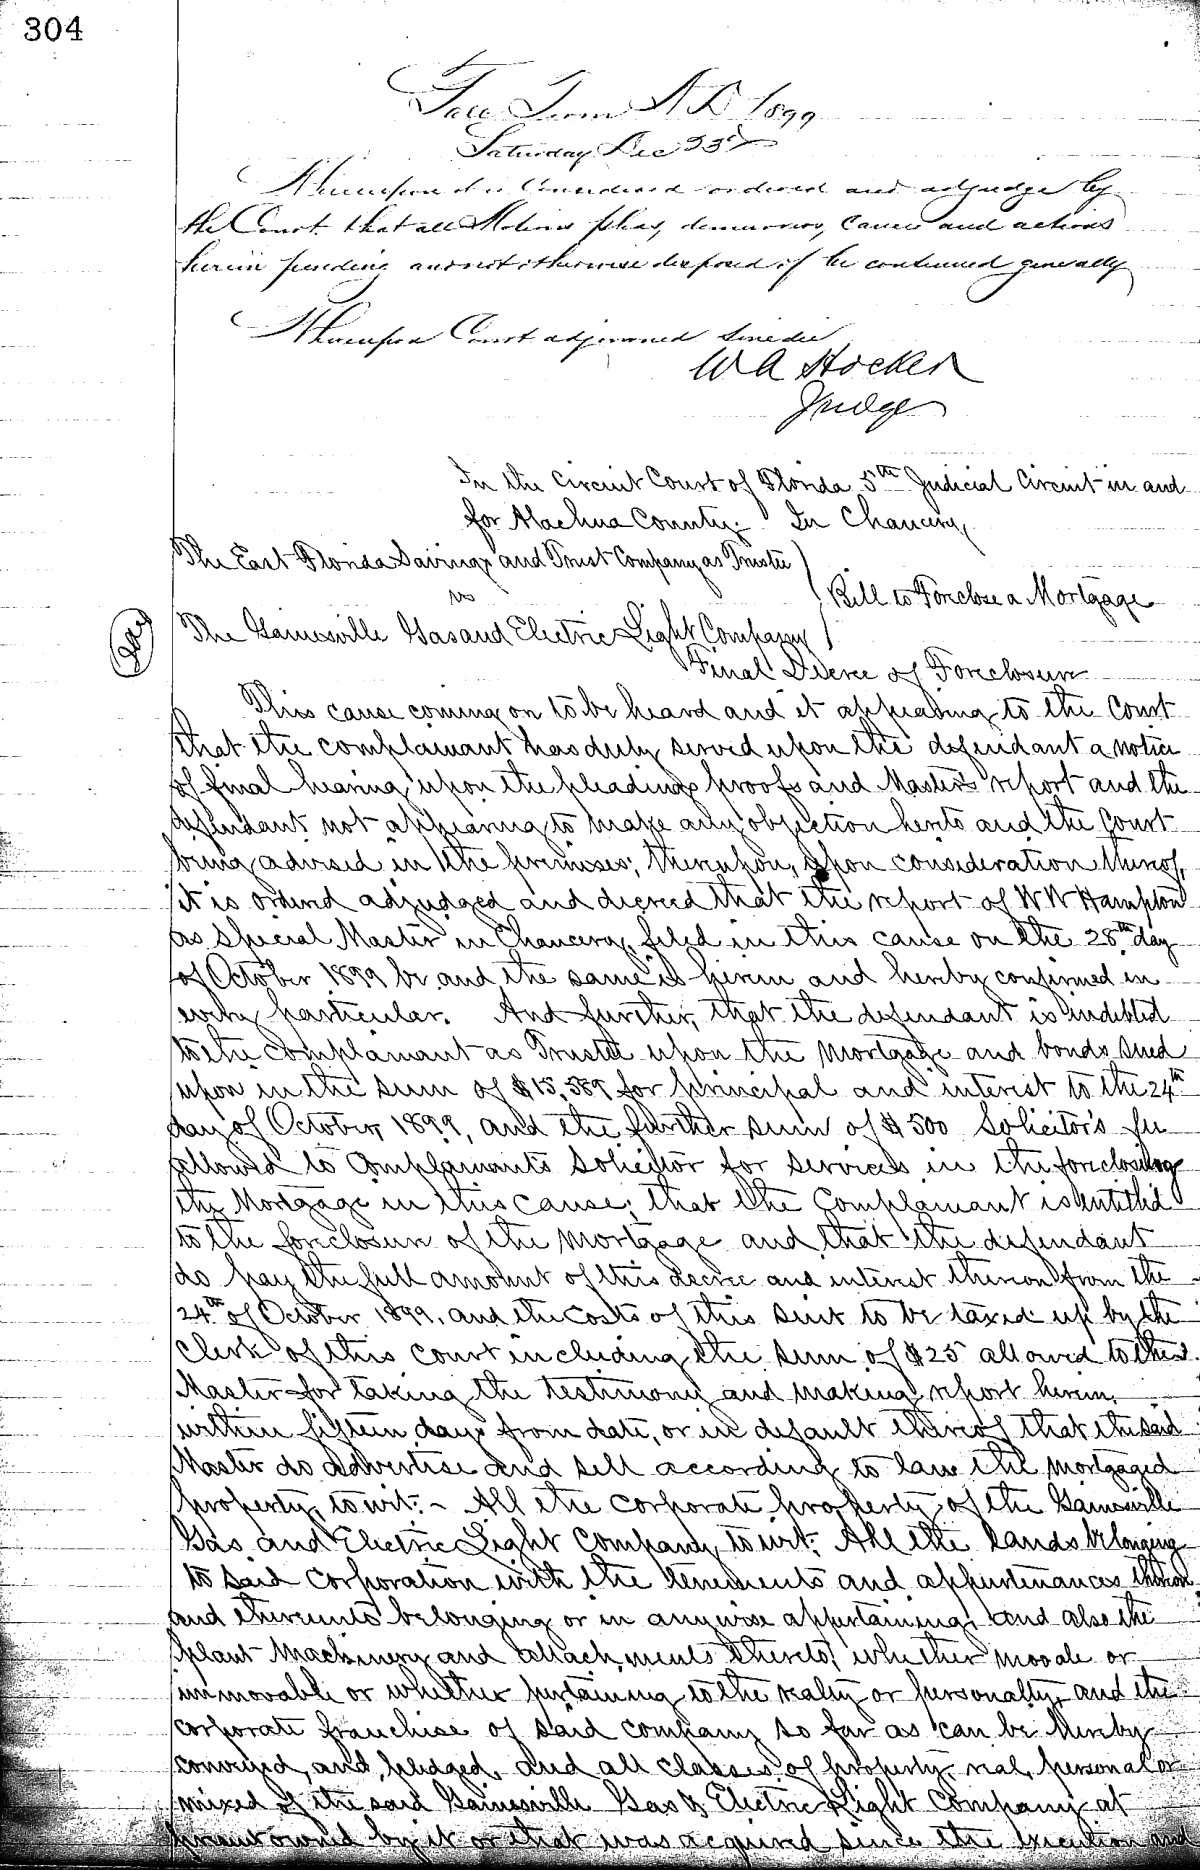 304
Fall Term A D 1899
Saturday Dec 23d
Thereupon it is Considered ordered and adjudge by
the Court that all Motions pleas, demurrers, causes and actions
herein pending and not otherwise disposed of be continued generally
Thereupon Court adjourned Sinedie
W A Hocker
Judge
In the Circuit Court of Florida 5th Judicial Circuit in and
for Alachua County. In Chancery,
The East Florida Savings and Trust Company as Trustee
vs
Bill to Foreclose a Mortgage
The Gainesville Gas and Electric Light Company
Final Decree of Foreclosure
This cause coming on to be heard and it appearing to the Court
that the complainant has duly served upon the defendant a notice
of final hearing upon the pleadings proofs and Master's report and the
defendant not appearing to make any objection hereto and the Court
being advised in the premises; thereupon, upon consideration thereof,
it is ordered adjudged and decreed that the report of W W Hampton
as Special Master in Chancery, filed in this cause on the 28th day
of October 1899 be and the same is herein and hereby confirmed in
every particular. And further, that the defendant is indebted
to the complainant as Trustee upon the Mortgage and bonds sued
upon in the sum of $15,589 for principal and interest to the 24th
day of October, 1899, and the further sum of $500 Solicitor's fee
allowed to Complainants Solicitor for services in the foreclosing
the Mortgage in this cause; that the Complainant is entitled
to the foreclosure of the mortgage and that the defendant
do pay the full amount of this decree and interest thereon from the
24th of October 1899, and the costs of this suit to be taxed up by the
Clerk of this court including the sum of $25 allowed to the
Master for taking the testimony and making report herein,
within fifteen days from date, or in default thereof that the said
Master do advertise and sell according to law the mortgaged
property, to wit:- All the corporate property of the Gainesville
Gas and Electric Light Company, to wit: All the lands belonging
to said corporation with the tenements and appurtenances thereon
and thereunto belonging or in anywise appertaining; and also the
plant machinery and attachments thereto, whether movale or
immovable or whether pertaining to the realty or personalty, and the
corporate franchise of said company so far as can be hereby
conveyed, and pledged, and all classes of property, real, personal or
mixed of the said Gainesville Gas & Electric Light Company at
present owned by it or that was acquired since the execution and